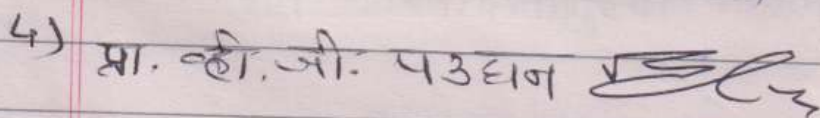 4) प्रा. व्ही. जी. पउधन